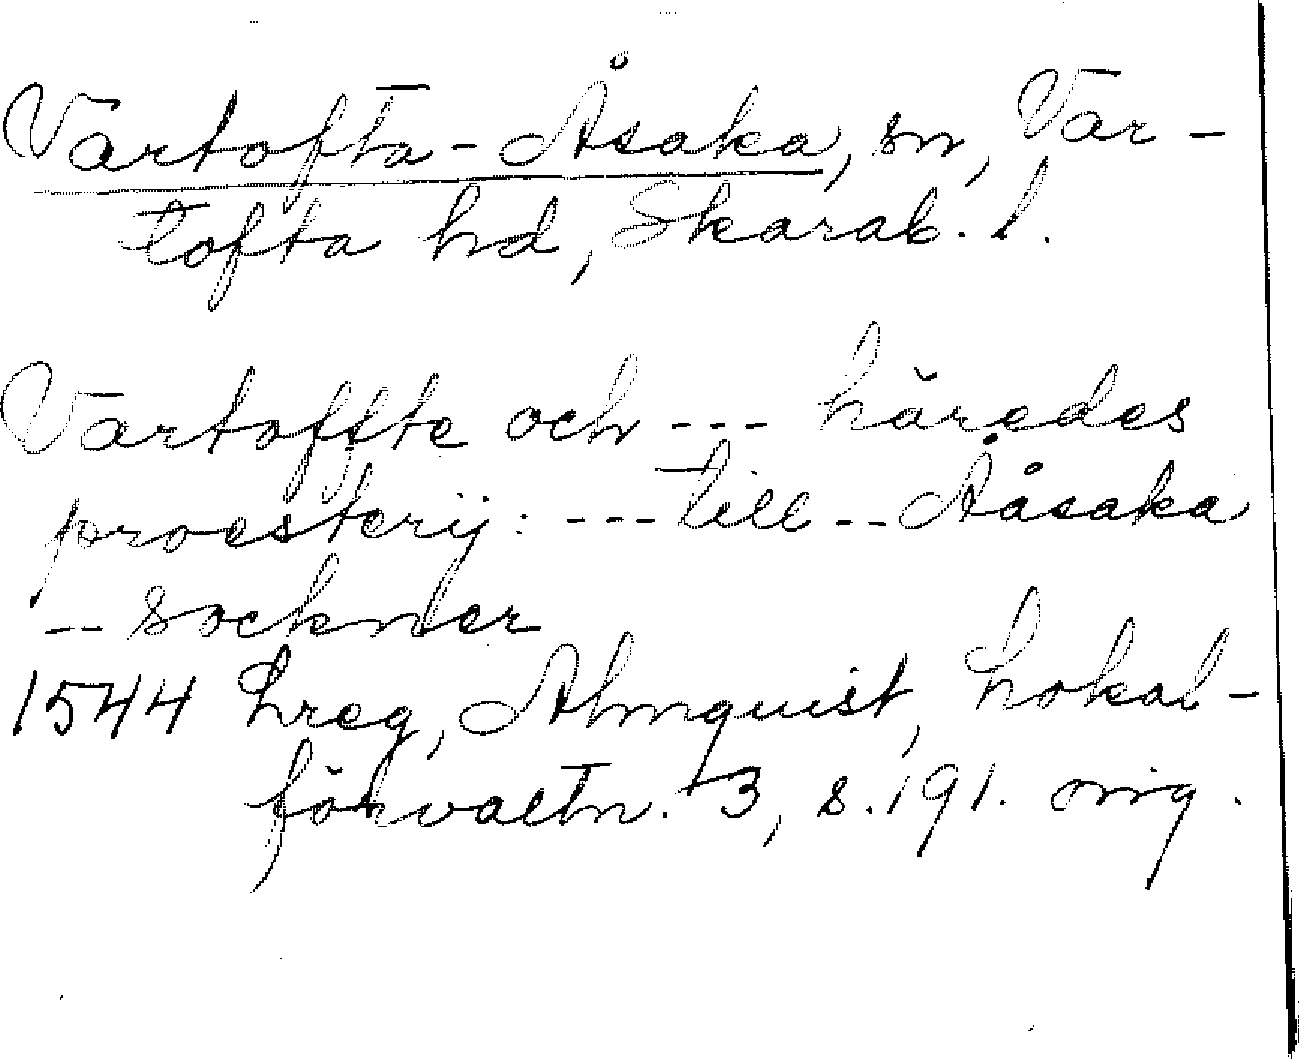 Vartofta-Åsaka, sn, Var-
tofta hd, Skarab. l.
Vartoffte och --- häredes
proesterij: --- till -- Ååsaka
-- sockner
1544 Lreg, Almquist, Lokal-
förvaltn. 3, s. 191. orig.